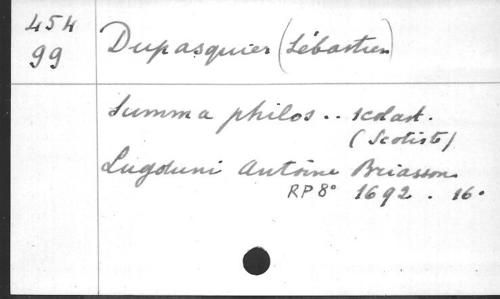 454
99
Dupasquier (Sébastien)
Summa philos .. scolast.
(Scotiste)
Lugduni Antoine Briasson
RP 8° 1692 . 16°